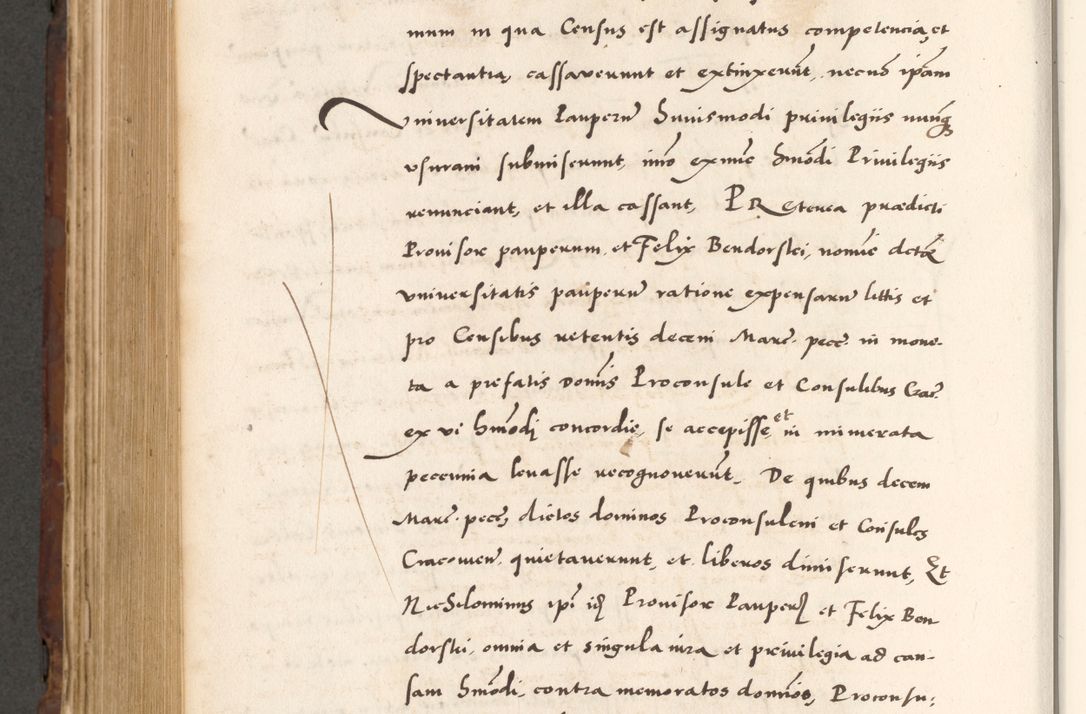 mum in qua Census est assignatus competencia, et
spectantia, cassaverunt et extinxerūt, necnō ip̄am
Vniversitatem Pauperū huiusmodi priuilegiis nunq̄
vsurani submiserunt, imō exnūc hmōdi Priuilegiis
renunciant, et illa cassant, PREterea prædicti
Prouisor pauperum, et Felix Bendorski, nomīe dctæ
vniuersitatis pauperū ratione expensarū littis et
pro Censibus retentis decem Marc. pecc. in mone-
ta a prefatis domīs Proconsule et Consulibus Crac.
ex vi hmōdj concordie, se accepisse, et in numerata
pecunia leuasse recognouerūt. De quibus decem
Marc. pecc, dictos dominos Proconsulem et Consules
Cracouien. quietauerunt, et liberos dimiserunt, Et
Nichilominus ipī ijd Prouisor Pauperū et Felix Ben
dorski, omnia et singula iura et priuilegia ad cau-
sam hmōdi, contra memoratos domīos, Proconsu: